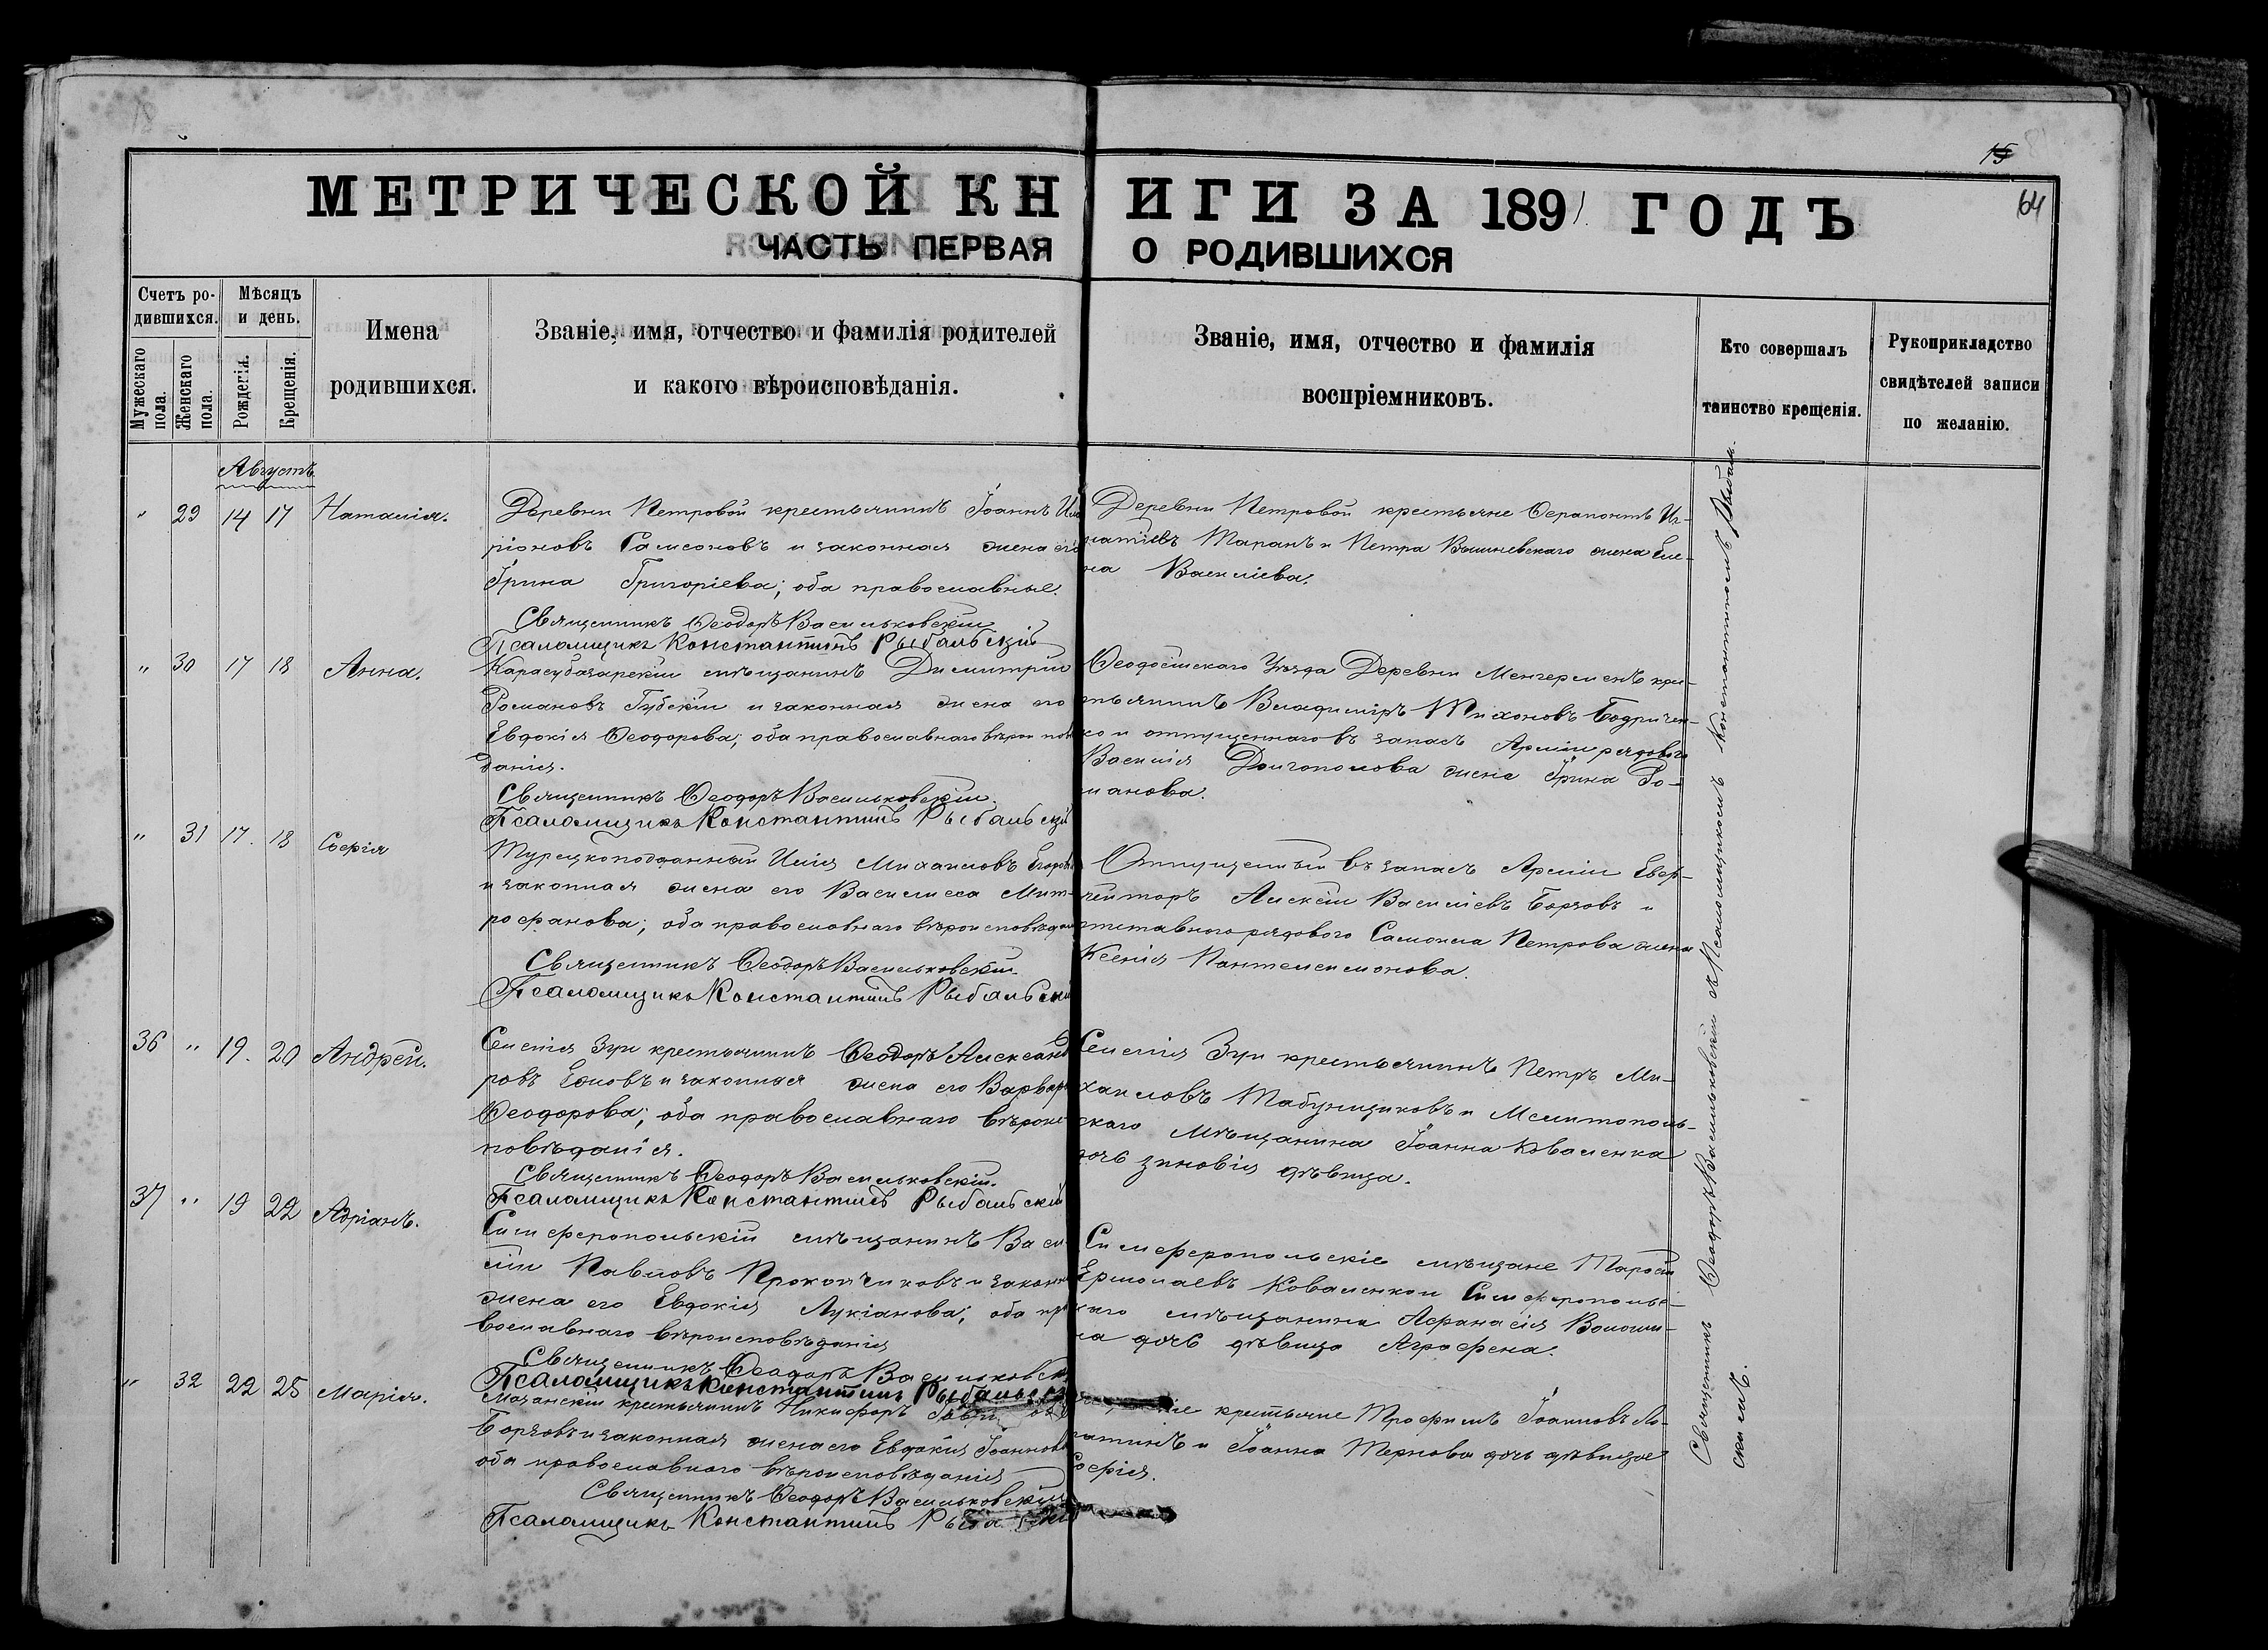 15
64
МЕТРИЧЕСКОЙ КНИГИ ЗА 1891 ГОДЪ
ЧАСТЬ ПЕРВАЯ О РОДИВШИХСЯ
Счетъ ро-
дившихся.
Мужескаго пола.
Женскаго пола.
Мѣсяцъ
и день.
Рожденія.
Крещенія.
Имена
родившихся.
Званіе, имя, отчество и фамилія родителей
и какого вѣроисповѣданія.
Званіе, имя, отчество и фамилія
воспріемниковъ.
Кто совершалъ
таинство крещенія.
Рукоприкладство
свидѣтелей записи
по желанію.
Августъ
" 29 14 17 Наталія.
Деревни Петровой крестьянинъ Іоаннъ
ріоновъ Самсоновъ и законная жена его
Ірина Григоріева; оба православные.
Священникъ Ѳеодоръ Васильковскій
Псаломщикъ Константинъ Рыбальскій
Деревни Петровой крестьяне Ѳерапонтъ Иг-
натіевъ Таранъ и Петра Вишневскаго жена Еле-
на Василіева.
" 30 17 18 Анна.
Карасубазарскій мѣщанинъ Димитрій
Романовъ Губскій и законная жена его
Евдокія Ѳеодорова; оба православнаго вѣроиспов
данія.
Священникъ Ѳеодоръ Васильковскій.
Псаломщикъ Константинъ Рыбальскій
Ѳеодосійскаго Уѣзда Деревни Менгерменъ кре-
стьянинъ Владиміръ Тихоновъ Бодричен-
ко и отпущеннаго въ запасъ Арміи рядового
Василія Долгополова жена Ірина Ро-
манова.
" 31 17. 18 Софія
Турецкоподданный Илія Михаиловъ
и законная жена его Василиса Мит-
рофанова; оба православнаго вѣроисповѣдан
Священникъ Ѳеодоръ Васильковскій
Псаломщикъ Константинъ Рыбальскій
Отпущенный въ запасъ Арміи Ефр-
ейторъ Алексій Василіевъ Борзовъ и
отставного рядового Самоила Петрова жена
Ксенія Пантелеимонова.
36 " 19. 20 Андрей.
Селенія Зуи крестьянинъ Ѳеодоръ Александ
ровъ и законная жена его Варвара
Ѳеодорова; оба православнаго вѣроис-
повѣданія.
Священникъ Ѳеодоръ Васильковскій.
Псаломщикъ Константинъ Рыбальскій
Селенія Зуи крестьянинъ Петръ Ми-
хаиловъ Табунщиковъ и Мелитополь-
скаго мѣщанина Іоанна Коваленка
дочь Зиновія дѣвица.
37 " 19 22 Адріанъ.
Симферопольскій мѣщанинъ Васи-
лій Павловъ Прокопчиковъ и законная
жена его Евдокія Лукіанова; оба пра
вославнаго вѣроисповѣданія
Священникъ Ѳеодоръ Васильковск
Псаломщикъ Константинъ Рыбальск
Симферопольскіе мѣщане Тарасій
Ермолаевъ Коваленко и Симферопольс-
каго мѣщанина Аѳанасія Волоши-
на дочь дѣвица Агрофена.
" 32 22 25 Марія.
Мазанскій крестьянинъ Никифоръ
Борзовъ и законная жена его Евдокія Іоаннова
оба православнаго вѣроисповѣданія
Священникъ Ѳеодоръ Васильковскій
Псаломщикъ Константинъ Рыбальскій
крестьяне Трофимъ Іоанновъ Ло-
патинъ и Іоанна Тернова дочь дѣвица
Софія.
Священникъ Ѳеодоръ Васильковскій съ Псаломщикомъ Константиномъ Рыбаль-
скимъ.